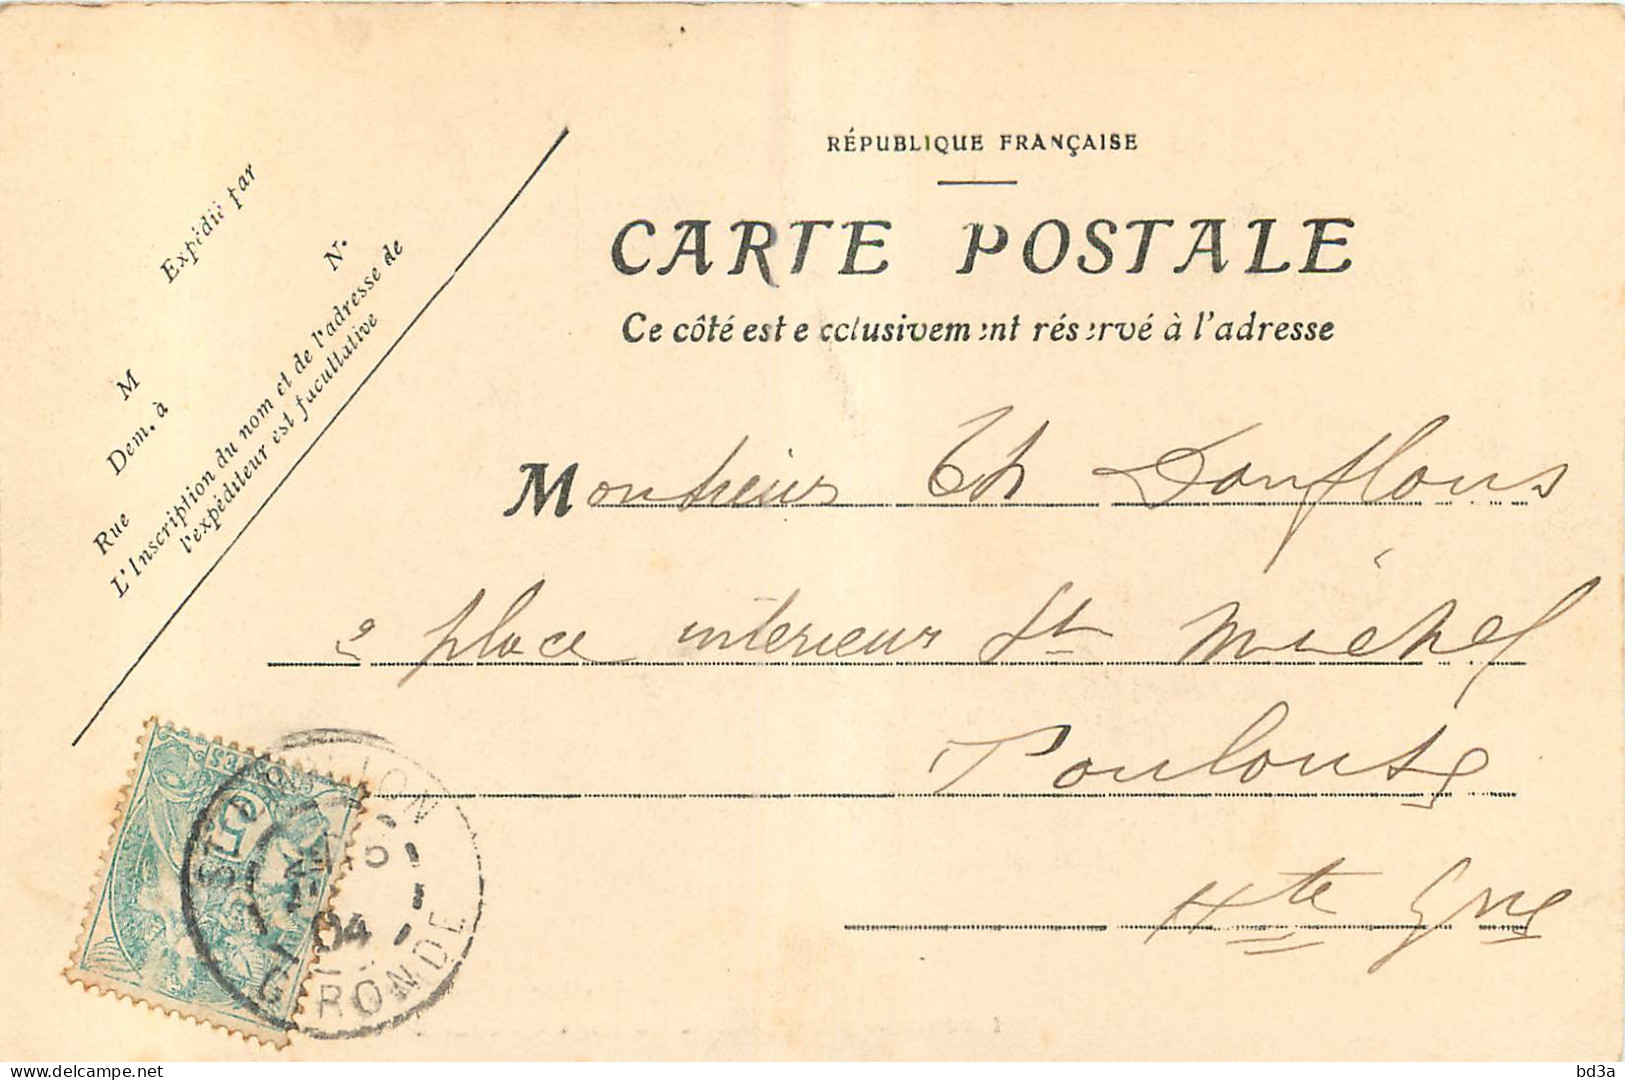 RÉPUBLIQUE FRANÇAISE
CARTE POSTALE
Ce côté est exclusivement réservé à l'adresse
Expédié par
M N.
Dem. à
Rue
L'Inscription du nom et de l'adresse de
l'expéditeur est facultative
Monsieur Th Douflous
2 place interieur St Michel
Toulouse
Hte Gne
5
04
GIRONDE
delcampe.net
bd3a